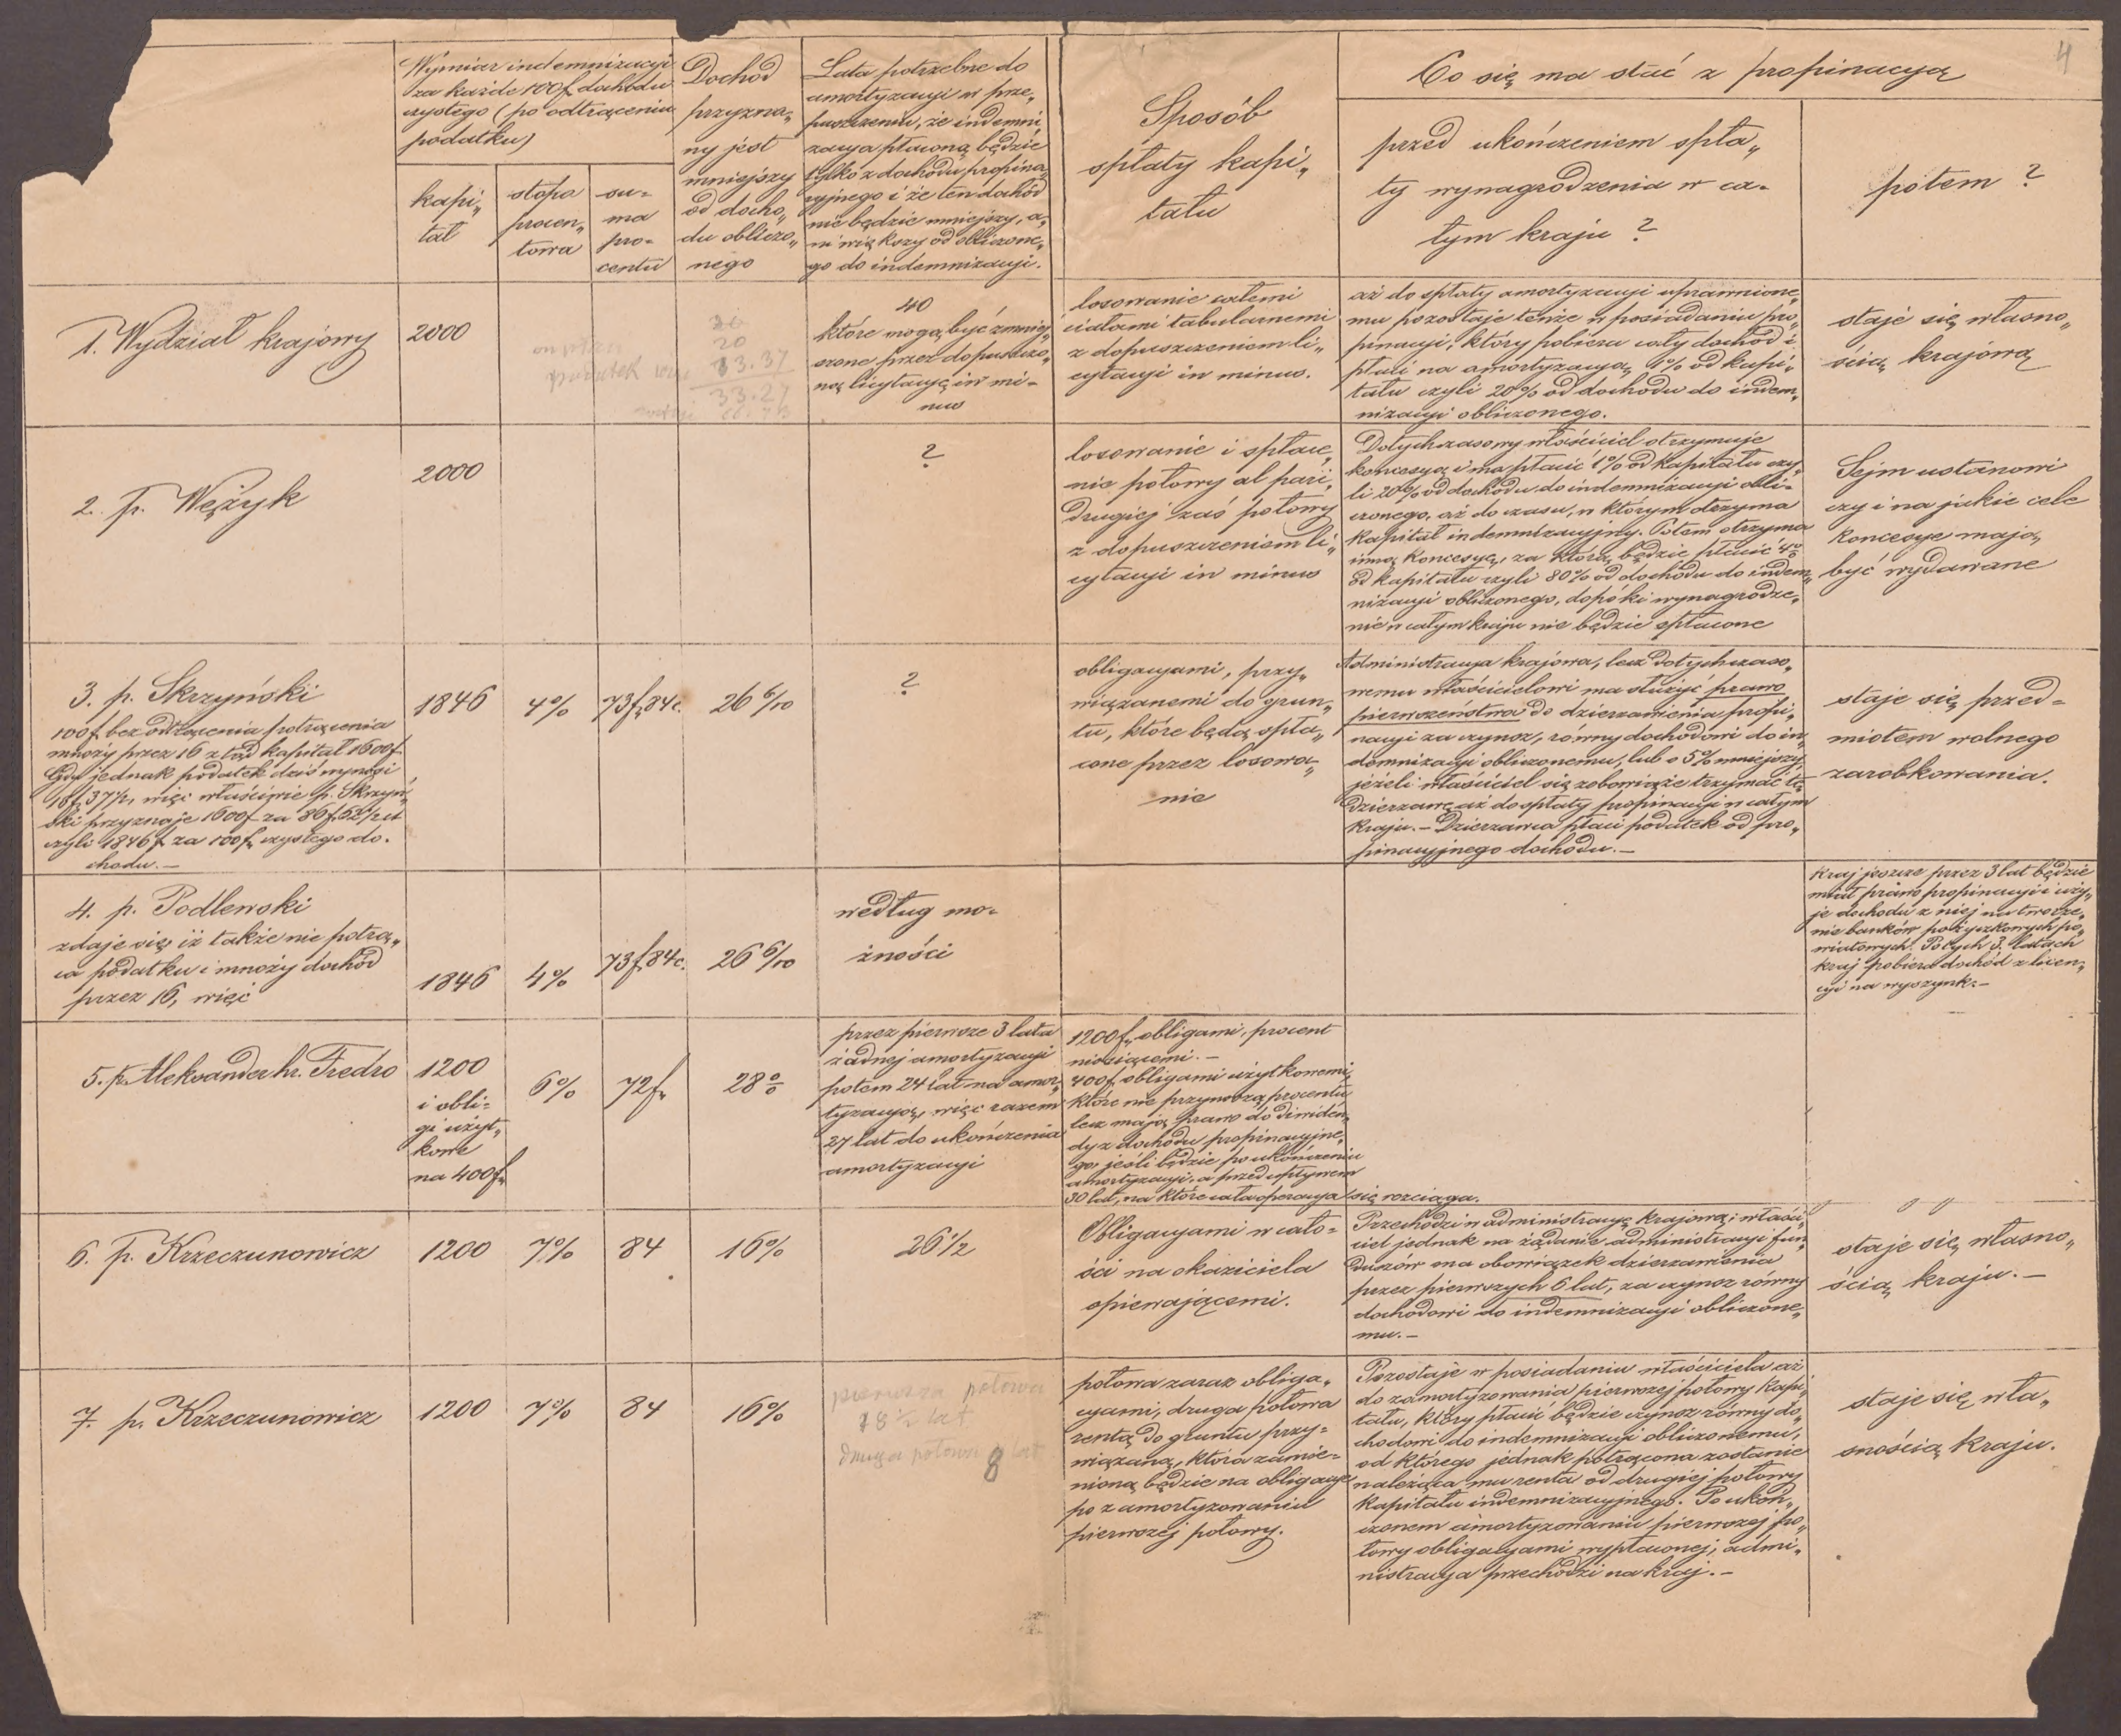 4
Wymiar indemnizacyi
za każde 100f. dochodu
czystego (po odtrąceniu
podatku)
kapi„
tał
stopa
procen„
towa
su-
ma
pro-
centu
Dochód
przyzna„
ny jest
mniejszy
od docho„
du obliczo„
nego
Lata potrzebne do
amortyzacyi w przy„
puszczeniu, że indemni
zacya płaconą będzie
tylko z dochodu propina„
cyjnego i że ten dochód
nie będzie mniejszy, a„
ni większy od obliczone„
go do indemnizacyi.
Sposób
spłaty kapi„
tału
Co się ma stać z propinacyą
przed ukończeniem spła„
ty wynagrodzenia w ca-
łym kraju ?
potem ?
1. Wydział krajowy
2000
20
13.37
33.27
40
które mogą być zmniej„
szone przez dopuszczo„
ną licytacyę in mi-
nus
losowanie całemi
ciałami tabularnemi
z dopuszczeniem li„
cytacyi in minus.
aż do spłaty amortyzacyi uprawnione„
mu pozostaje tenże w posiadaniu pro„
pinacyi, który pobiera cały dochód i
płaci na amortyzacyą 1% od kapi„
tału czyli 20% od dochodu do indem„
nizacyi obliczonego.
staje się własno„
ścią krajową
2. p. Wężyk
2000
?
losowanie i spłace„
nie połowy al pari,
drugiej zaś połowy
z dopuszczeniem li„
cytacyi in minus
Dotychczasowy właściciel otrzymuje
koncesyą i ma płacić 1% od kapitału czy„
li 20% od dochodu do indemnizacyi obli-
czonego, aż do czasu, w którym otrzyma
kapitał indemnizacyjny. Potem otrzyma
inną koncesyę, za którą będzie płacić 4%
od kapitału czyli 80% od dochodu do indem„
nizacyi obliczonego, dopóki wynagrodze„
nie w całym kraju nie będzie spłacone
Sejm ustanowi
czy i na jakie cele
koncesye mają
być wydawane
3. p. Skrzyński
100f. bez odtrącenia potrącenia
mnoży przez 16 ztąd kapitał 1600f.
Gdy jednak podatek dziś wynosi
13f. 37½, więc właściwie p. Skrzyń„
ski przyznaje 1600f. za 86f. 62½ ct
czyli 1846f. za 100f. czystego do-
chodu.—
1846
4%
73f. 84c.
26 6/10
?
obligacyami, przy„
wiązanemi do grun„
tu, które będą spła„
cone przez losowa„
nie
Administracya krajowa, lecz dotychczaso„
wemu właścicielowi ma służyć prawo
pierwszeństwa do dzierzawienia propi„
nacyi za czynsz, równy dochodowi do in„
demnizacyi obliczonemu, lub o 5% mniejszy
jeżeli właściciel się zobowiąże trzymać tę
dzierzawę aż do spłaty propinacyi w całym
kraju.— Dzierzawca płaci podatek od pro„
pinacyjnego dochodu.—
staje się przed-
miotem wolnego
zarobkowania.
4. p. Podlewski
zdaje się iż także nie potrą„
ca podatku i mnoży dochód
przez 16, więc
1846
4%
73f. 84c.
26 6/10
według mo-
żności
Kraj jeszcze przez 3 lat będzie
miał prawo propinacyi i uży„
je dochodu z niej na tworze„
nie banków pożyczkowych po„
wiatowych. Po tych 3. latach
kraj pobiera dochód z licen„
cyi na wyszynk.—
5. p. Aleksander hr. Fredro
1200
i obli-
gi użyt„
kowe
na 400f.
6%
72f.
28%
przez pierwsze 3 lata
żadnej amortyzacyi
potem 24 lat na amor„
tyzacyą, więc razem
27 lat do ukończenia
amortyzacyi
1200f. obligami, procent
niosiącemi.—
400f. obligami użytkowemi,
które nie przynoszą procentu
lecz mają prawo do dividen„
dy z dochodu propinacyjne„
go, jeśli będzie po ukończeniu
amortyzacyi, a przed upływem
30 lat, na które cała operacya się rozciąga.
6. p. Krzeczunowicz
1200
7%
84
16%
26½
Obligacyami w cało-
ści na okaziciela
opiewającemi.
Przechodzi w administracyę krajową; właści„
ciel jednak na żądanie administracyi fun„
duszów ma obowiązek dzierzawienia
przez pierwszych 6 lat, za czynsz równy
dochodowi do indemnizacyi obliczone„
mu.—
staje się własno„
ścią kraju.—
7. p. Krzeczunowicz
1200
7%
84
16%
pierwsza połowa
18½ lat
druga połowa 8 lat
połowa zaraz obliga„
cyami, druga połowa
rentą do gruntu przy-
wiązaną, która zamie-
nioną będzie na obligacye
po zamortyzowaniu
pierwszej połowy.
Pozostaje w posiadaniu właściciela aż
do zamortyzowania pierwszej połowy kapi„
tału, który płacić będzie czynsz równy do„
chodowi do indemnizacyi obliczonemu,
od którego jednak potrącona zostanie
należąca mu renta od drugiej połowy
kapitału indemnizacyjnego. Po ukoń„
czonem amortyzowaniu pierwszej po„
łowy obligacyami wypłaconej, admi„
nistracya przechodzi na kraj.—
staje się wła„
snością kraju.